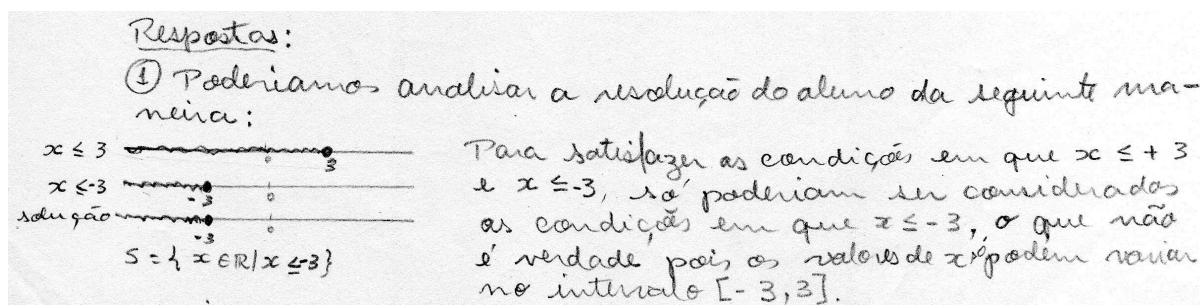 Respostas:
① Poderiamos analisar a resolução do aluno da seguinte ma-
neira:
x ≤ 3
3
0
x ≤ -3
-3
0
solução
-3
0
S = { x ∈ R / x ≤ -3}
Para satisfazer as condições em que x ≤ + 3
e x ≤ -3, só poderiam ser consideradas
as condições em que x ≤ -3, o que não
é verdade pois os valores de x só podem variar
no intervalo [-3,3].